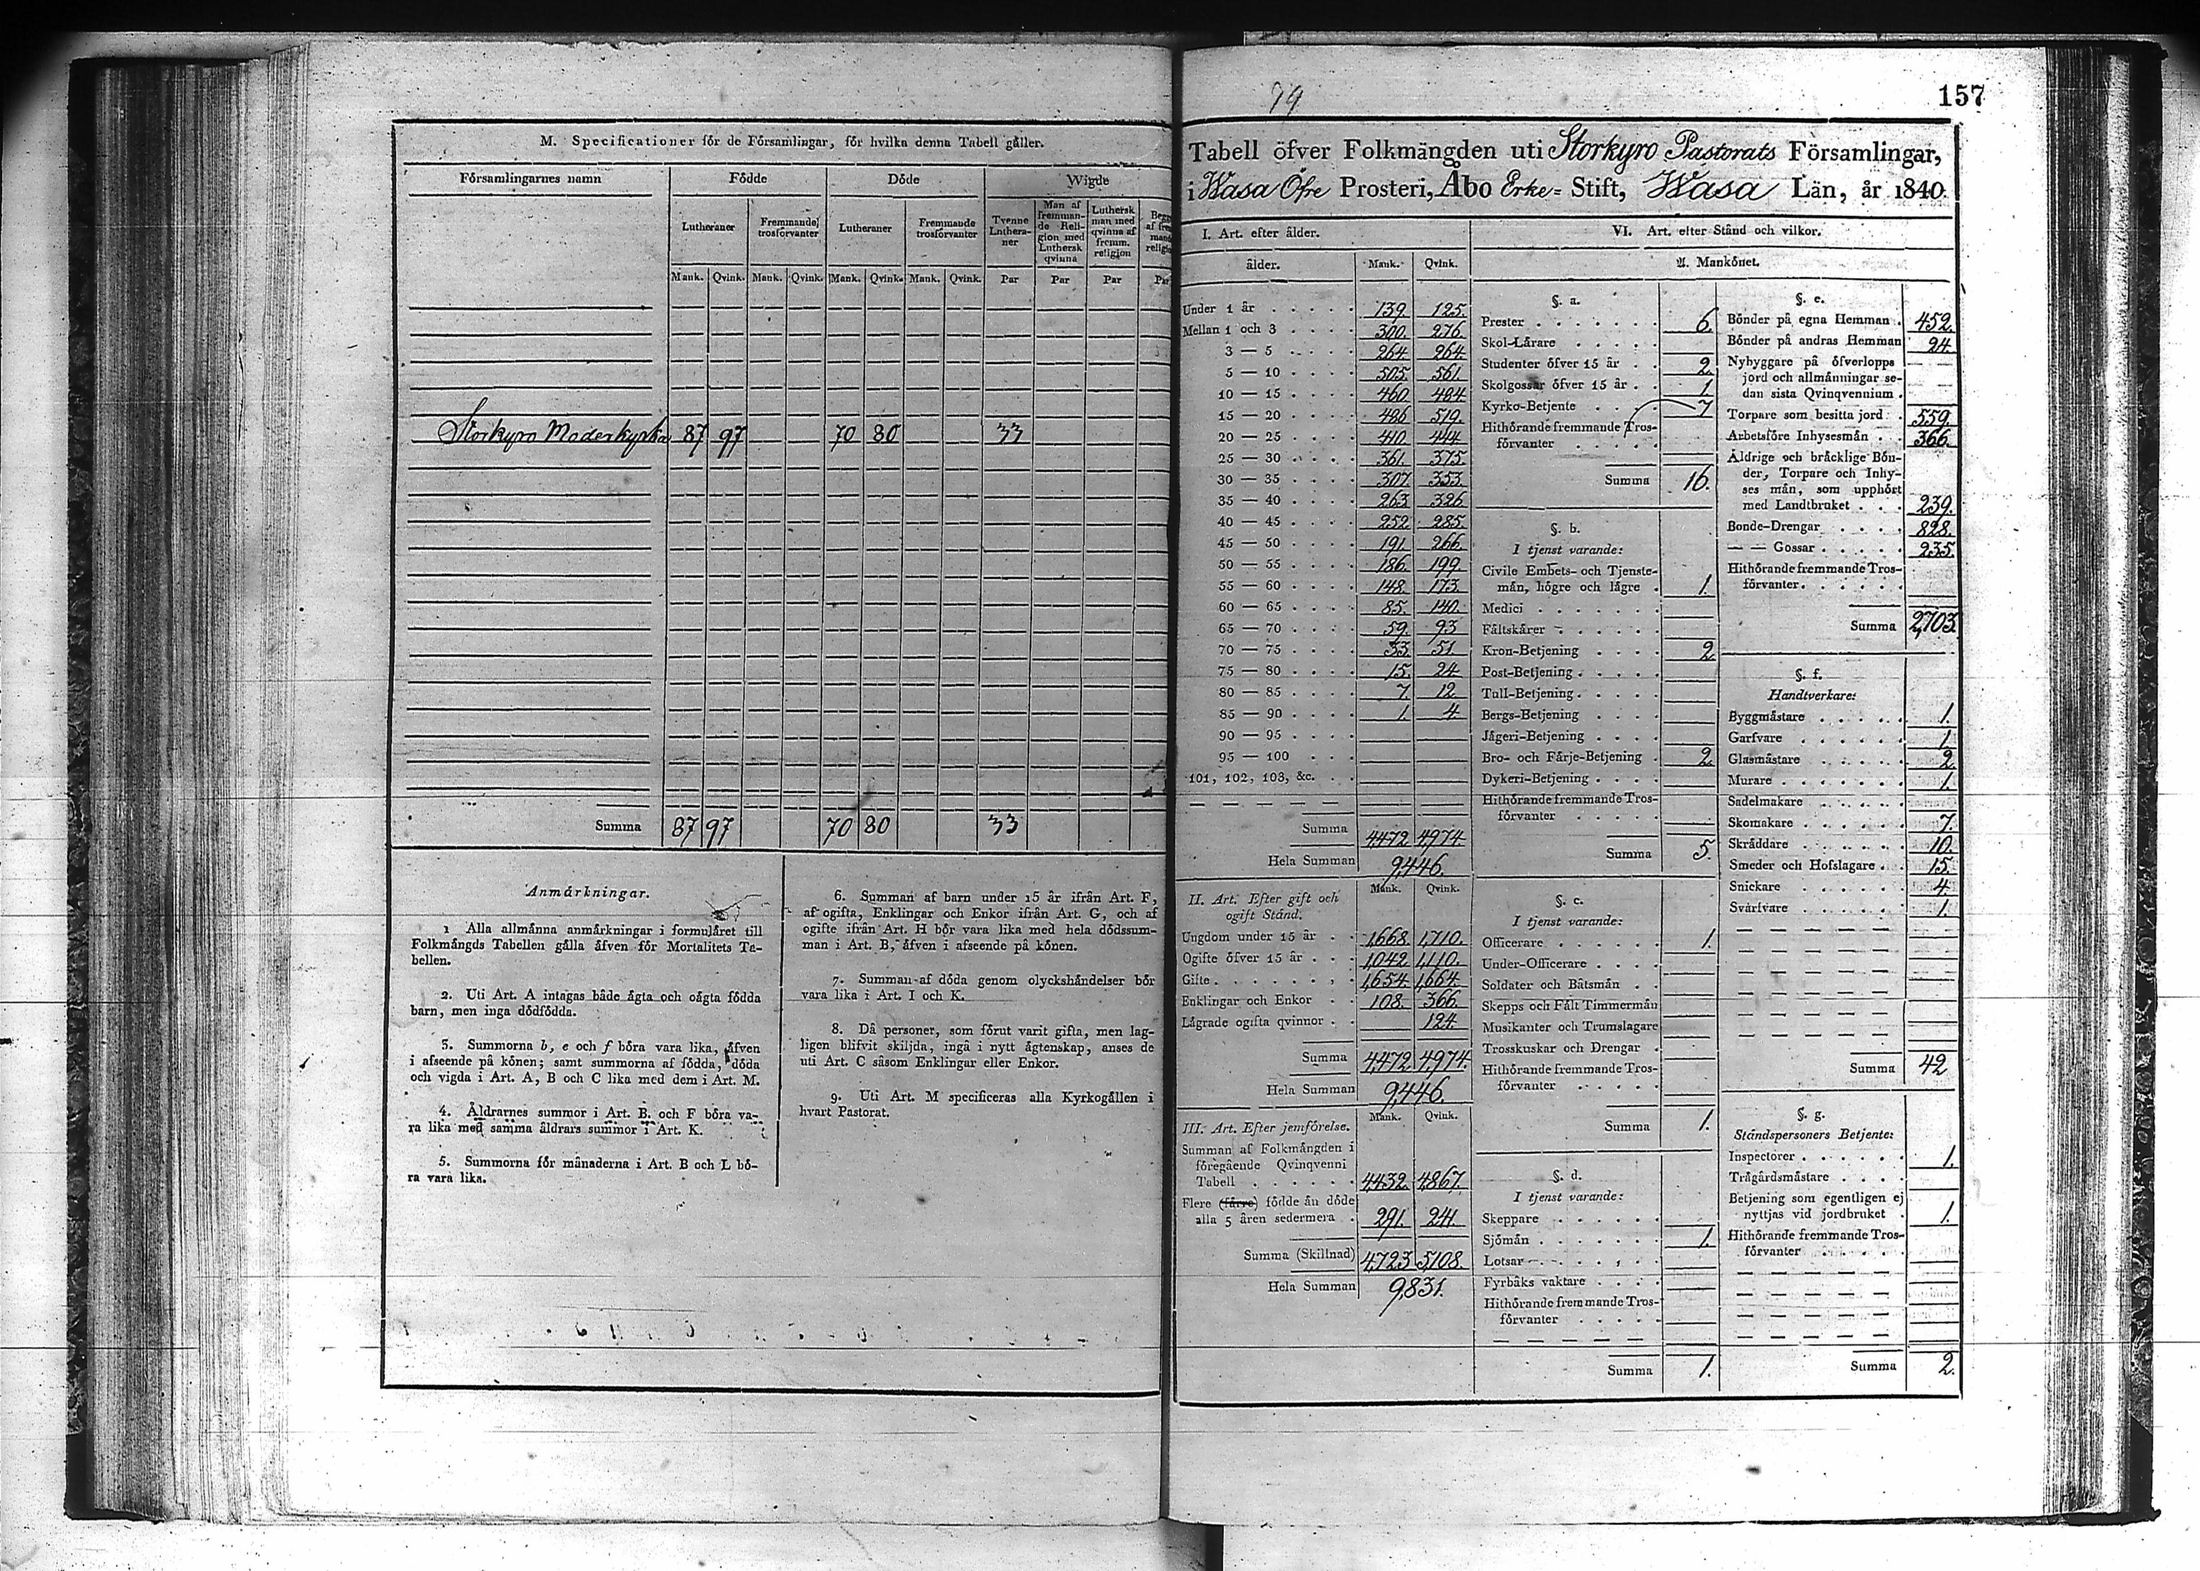 M. Specificationer för de Församlingar, för hvilka denna Tabell gäller.
Församlingarnes namn Födde Döde Wigde
Lutheraner Fremmande trosförvanter Lutheraner Fremmande trosförvanter Tvenne Lutheraner Man af fremmande Religion med Luthersk qvinna Luthersk man med qvinna af fremm. religion
Mank. Qvink. Mank. Qvink. Mank. Qvink. Mank. Qvink. Par Par Par Par
Storkyro Moderkyrka 87 97 70 80 33
Summa 87 97 70 80 33
Anmärkningar.
1 Alla allmänna anmärkningar i formuläret till
Folkmängds Tabellen gälla äfven för Mortalitets Ta-
bellen.
2. Uti Art. A intagas både ägta och oägta födda
barn, men inga dödfödda.
3. Summorna b, e och f böra vara lika, äfven
i afseende på könen; samt summorna af födda, döda
och vigda i Art. A, B och C lika med dem i Art. M.
4. Åldrarnes summor i Art. B. och F böra va-
ra lika med samma åldrars summor i Art. K.
5. Summorna för månaderna i Art. B och L bö-
ra vara lika.
6. Summan af barn under 15 år ifrån Art. F,
af ogifta, Enklingar och Enkor ifrån Art. G, och af
ogifte ifrån Art. H bör vara lika med hela dödssum-
man i Art. B, äfven i afseende på könen.
7. Summan af döda genom olyckshändelser bör
vara lika i Art. I och K.
8. Då personer, som förut varit gifta, men lag-
ligen blifvit skiljda, ingå i nytt ägtenskap, anses de
uti Art. C såsom Enklingar eller Enkor.
9. Uti Art. M specificeras alla Kyrkogällen i
hvart Pastorat.
79
157
Tabell öfver Folkmängden uti Storkyro Pastorats Församlingar,
i Wasa Öfre Prosteri, Åbo Erke- Stift, Wasa Län, år 1840.
I. Art. efter ålder.
ålder. Mank. Qvink.
Under 1 år 139. 125.
Mellan 1 och 3 300. 276.
3 — 5 264. 264.
5 — 10 505. 561.
10 — 15 460. 484.
15 — 20 486. 519.
20 — 25 410. 444.
25 — 30 361. 375.
30 — 35 307. 353.
35 — 40 263. 326.
40 — 45 252. 285.
45 — 50 191. 266.
50 — 55 186. 199.
55 — 60 148. 173.
60 — 65 85. 140.
65 — 70 59. 93
70 — 75 33. 51.
75 — 80 15. 24.
80 — 85 7. 12.
85 — 90 1. 4.
90 — 95
95 — 100
101, 102, 103, &c.
Summa 4472 4,974.
Hela Summan 9,446.
II. Art. Efter gift och ogift Stånd. Mank. Qvink.
Ungdom under 15 år 1,668. 1,710.
Ogifte öfver 15 år 1,042. 1,110.
Gifte 1,654. 1,664.
Enklingar och Enkor 108. 366.
Lägrade ogifta qvinnor 124.
Summa 4,472. 4,974.
Hela Summan 9,446.
III. Art. Efter jemförelse. Mank. Qvink.
Summan af Folkmängden i
föregående Qvinqvenni
Tabell 4,432. 4,867.
Flere (färre) födde än döde
alla 5 åren sedermera 291. 241.
Summa (Skillnad) 4,723 5,108.
Hela Summan 9,831.
VI. Art. efter Stånd och vilkor.
A. Mankönet.
§. a.
Prester 6.
Skol-Lärare
Studenter öfver 15 år 2.
Skolgossar öfver 15 år 1
Kyrko-Betjente 7
Hithörande fremmande Tros-
förvanter
Summa 16.
§. b.
I tjenst varande:
Civile Embets- och Tjenste-
män, högre och lägre 1.
Medici
Fältskärer
Kron-Betjening 2
Post-Betjening
Tull-Betjening
Bergs-Betjening
Jägeri-Betjening
Bro- och Färje-Betjening 2.
Dykeri-Betjening
Hithörande fremmande Tros-
förvanter
Summa 5.
§. c.
I tjenst varande:
Officerare 1.
Under-Officerare
Soldater och Båtsmän
Skepps och Fält Timmermän
Musikanter och Trumslagare
Trosskuskar och Drengar
Hithörande fremmande Tros-
förvanter
Summa 1.
§. d.
I tjenst varande:
Skeppare
Sjömän 1.
Lotsar
Fyrbåks vaktare
Hithörande fremmande Tros-
förvanter
Summa 1.
§. e.
Bönder på egna Hemman 452.
Bönder på andras Hemman 24.
Nybyggare på öfverlopps
jord och allmänningar se-
dan sista Qvinqvennium
Torpare som besitta jord 559.
Arbetsföre Inhysesmän 366.
Åldrige och bräcklige Bön-
der, Torpare och Inhy-
ses män, som upphört
med Landtbruket 239.
Bonde-Drengar 828.
— — Gossar 235.
Hithörande fremmande Tros-
förvanter
Summa 2,703.
§. f.
Handtverkare:
Byggmästare 1.
Garfvare 1.
Glasmästare 2.
Murare 1.
Sadelmakare
Skomakare 7.
Skräddare 10.
Smeder och Hofslagare 15.
Snickare 4.
Svarfvare 1.
Summa 42
§. g.
Ståndspersoners Betjente:
Inspectorer 1.
Trägårdsmästare
Betjening som egentligen ej
nyttjas vid jordbruket 1.
Hithörande fremmande Tros-
förvanter
Summa 2.